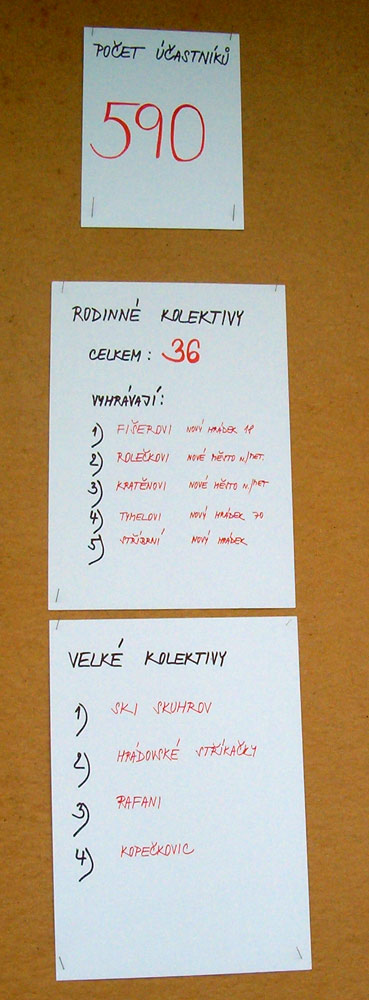 POČET ÚČASTNÍKŮ
590
RODINNÉ KOLEKTIVY
CELKEM: 36
VYHRÁVAJÍ:
1) FIŠEROVI NOVÝ HRÁDEK 18
2) ROLEČKOVI NOVÉ MĚSTO N/MET.
3) KRATĚNOVI NOVÉ MĚSTO N/MET
4) TYMELOVI NOVÝ HRÁDEK 70
5) STŘÍBRNÍ NOVÝ HRÁDEK
VELKÉ KOLEKTIVY
1) SKI SKUHROV
2) HRÁDOVSKÉ STŘÍKAČKY
3) RAFANI
4) KOPEČKOVIC